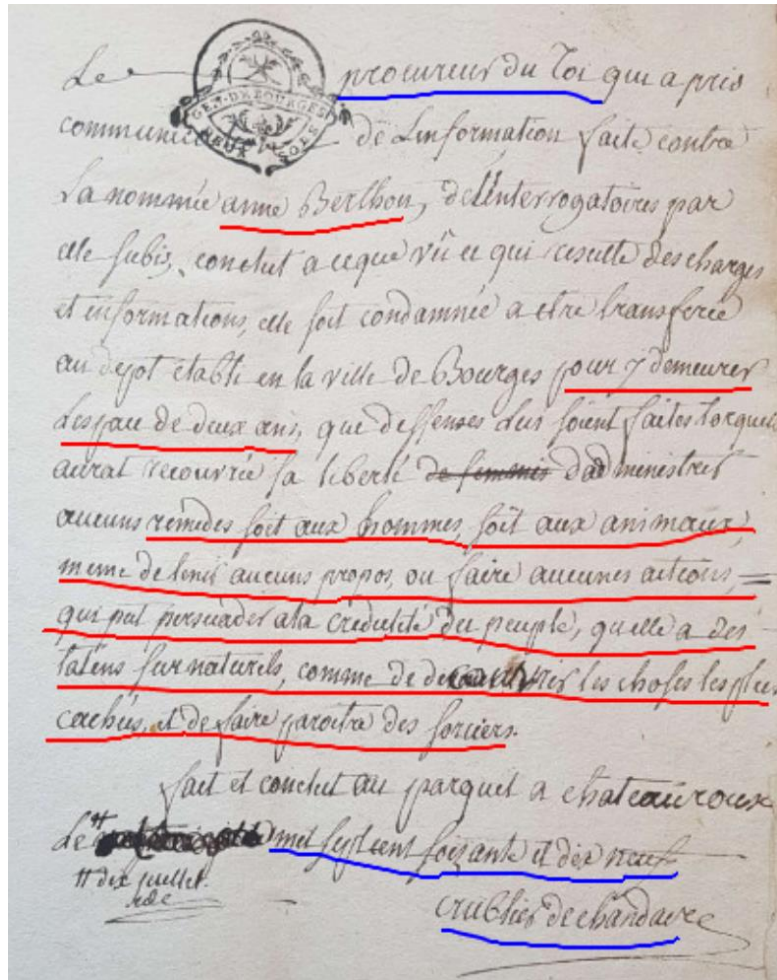 Le procureur du Roi qui a pris
communica de L'information faite contre
La nommée anne Berthon, de L'interrogatoires par
elle subis, conclut a ceque vû ce qui resulte des charges
et informations, elle soit condamnée a etre transferée
au depot établi en la ville de Bourges pour y demeurer
L'espace de deux ans, que deffenses Lui soient faites Lorquel
aurat recouvrée sa liberté d'administrer
aucuns remedes soit aux hommes, soit aux animaux,
meme de tenir aucuns propos, ou faire aucunes actions,
qui put persuader ala crédulité du peuple, quelle a des
talens surnaturels, comme de decouvrir les choses les plus
cachées, et de faire paroitre des sorciers.
fait et conclut au parquet a chateauroux
Le mil sept cent soixante et dix neuf
dix juillet
crublier de chandaire
GEN. DE BOURGES
DEUX SOLS